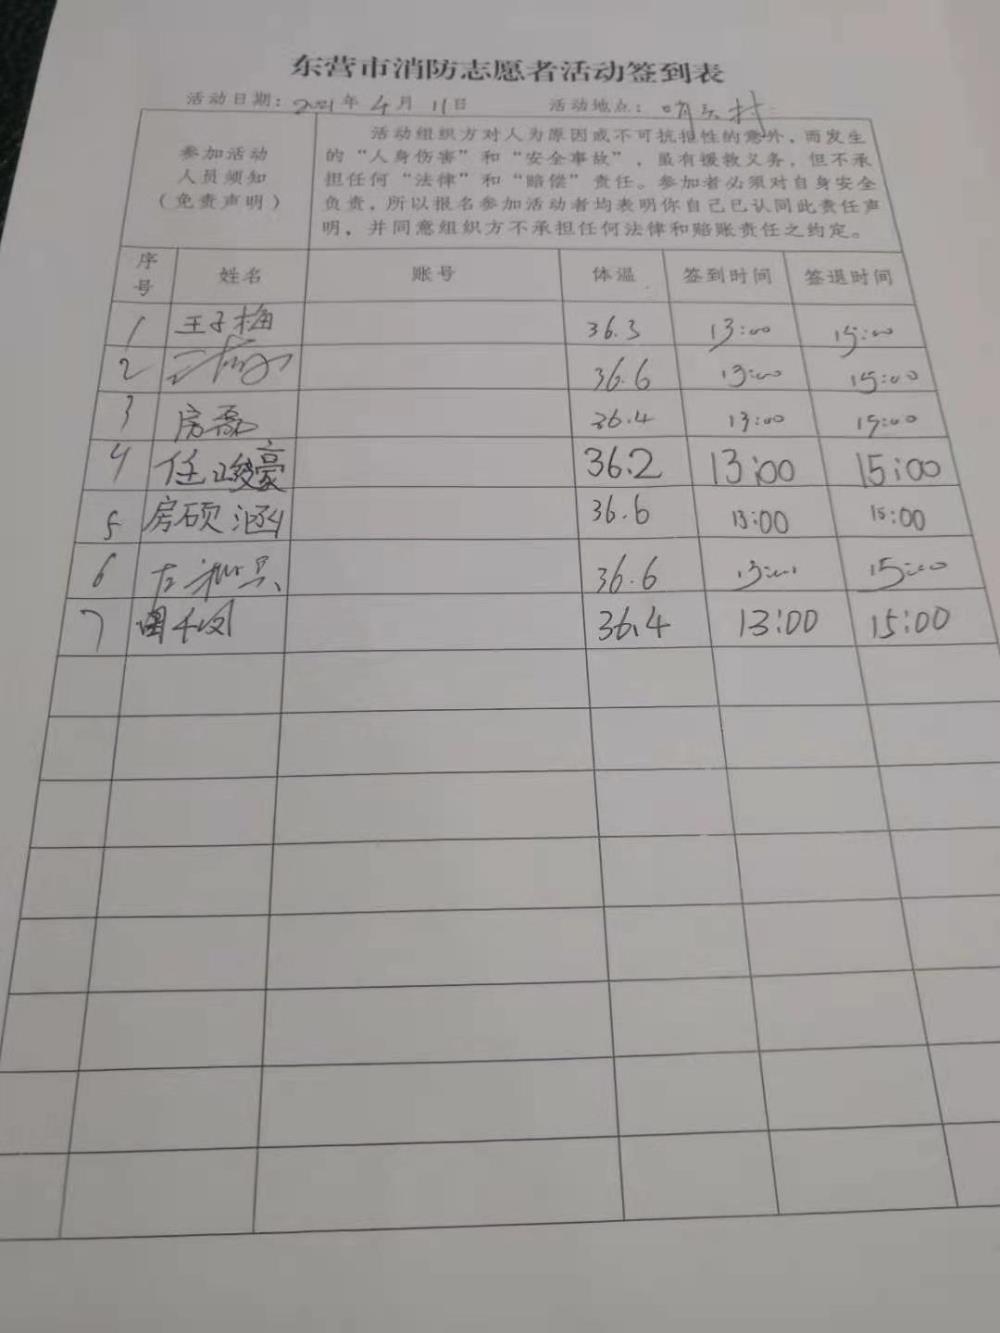 东营市消防志愿者活动签到表
活动日期：2021年4月11日 活动地点：哨头村
参加活动
人员须知
（免责声明）
活动组织方对人为原因或不可抗拒性的意外，而发生
的“人身伤害”和“安全事故”，虽有援救义务，但不承
担任何“法律”和“赔偿”责任。参加者必须对自身安全
负责，所以报名参加活动者均表明你自己已认同此责任声
明，并同意组织方不承担任何法律和赔账责任之约定。
序号 姓名 账号 体温 签到时间 签退时间
1 王子梅 36.3 13:00 15:00
2 36.6 13:00 15:00
3 房磊 36.4 13:00 15:00
4 任峻豪 36.2 13:00 15:00
5 房硕涵 36.6 13:00 15:00
6 36.6 13:00 15:00
7 36.4 13:00 15:00